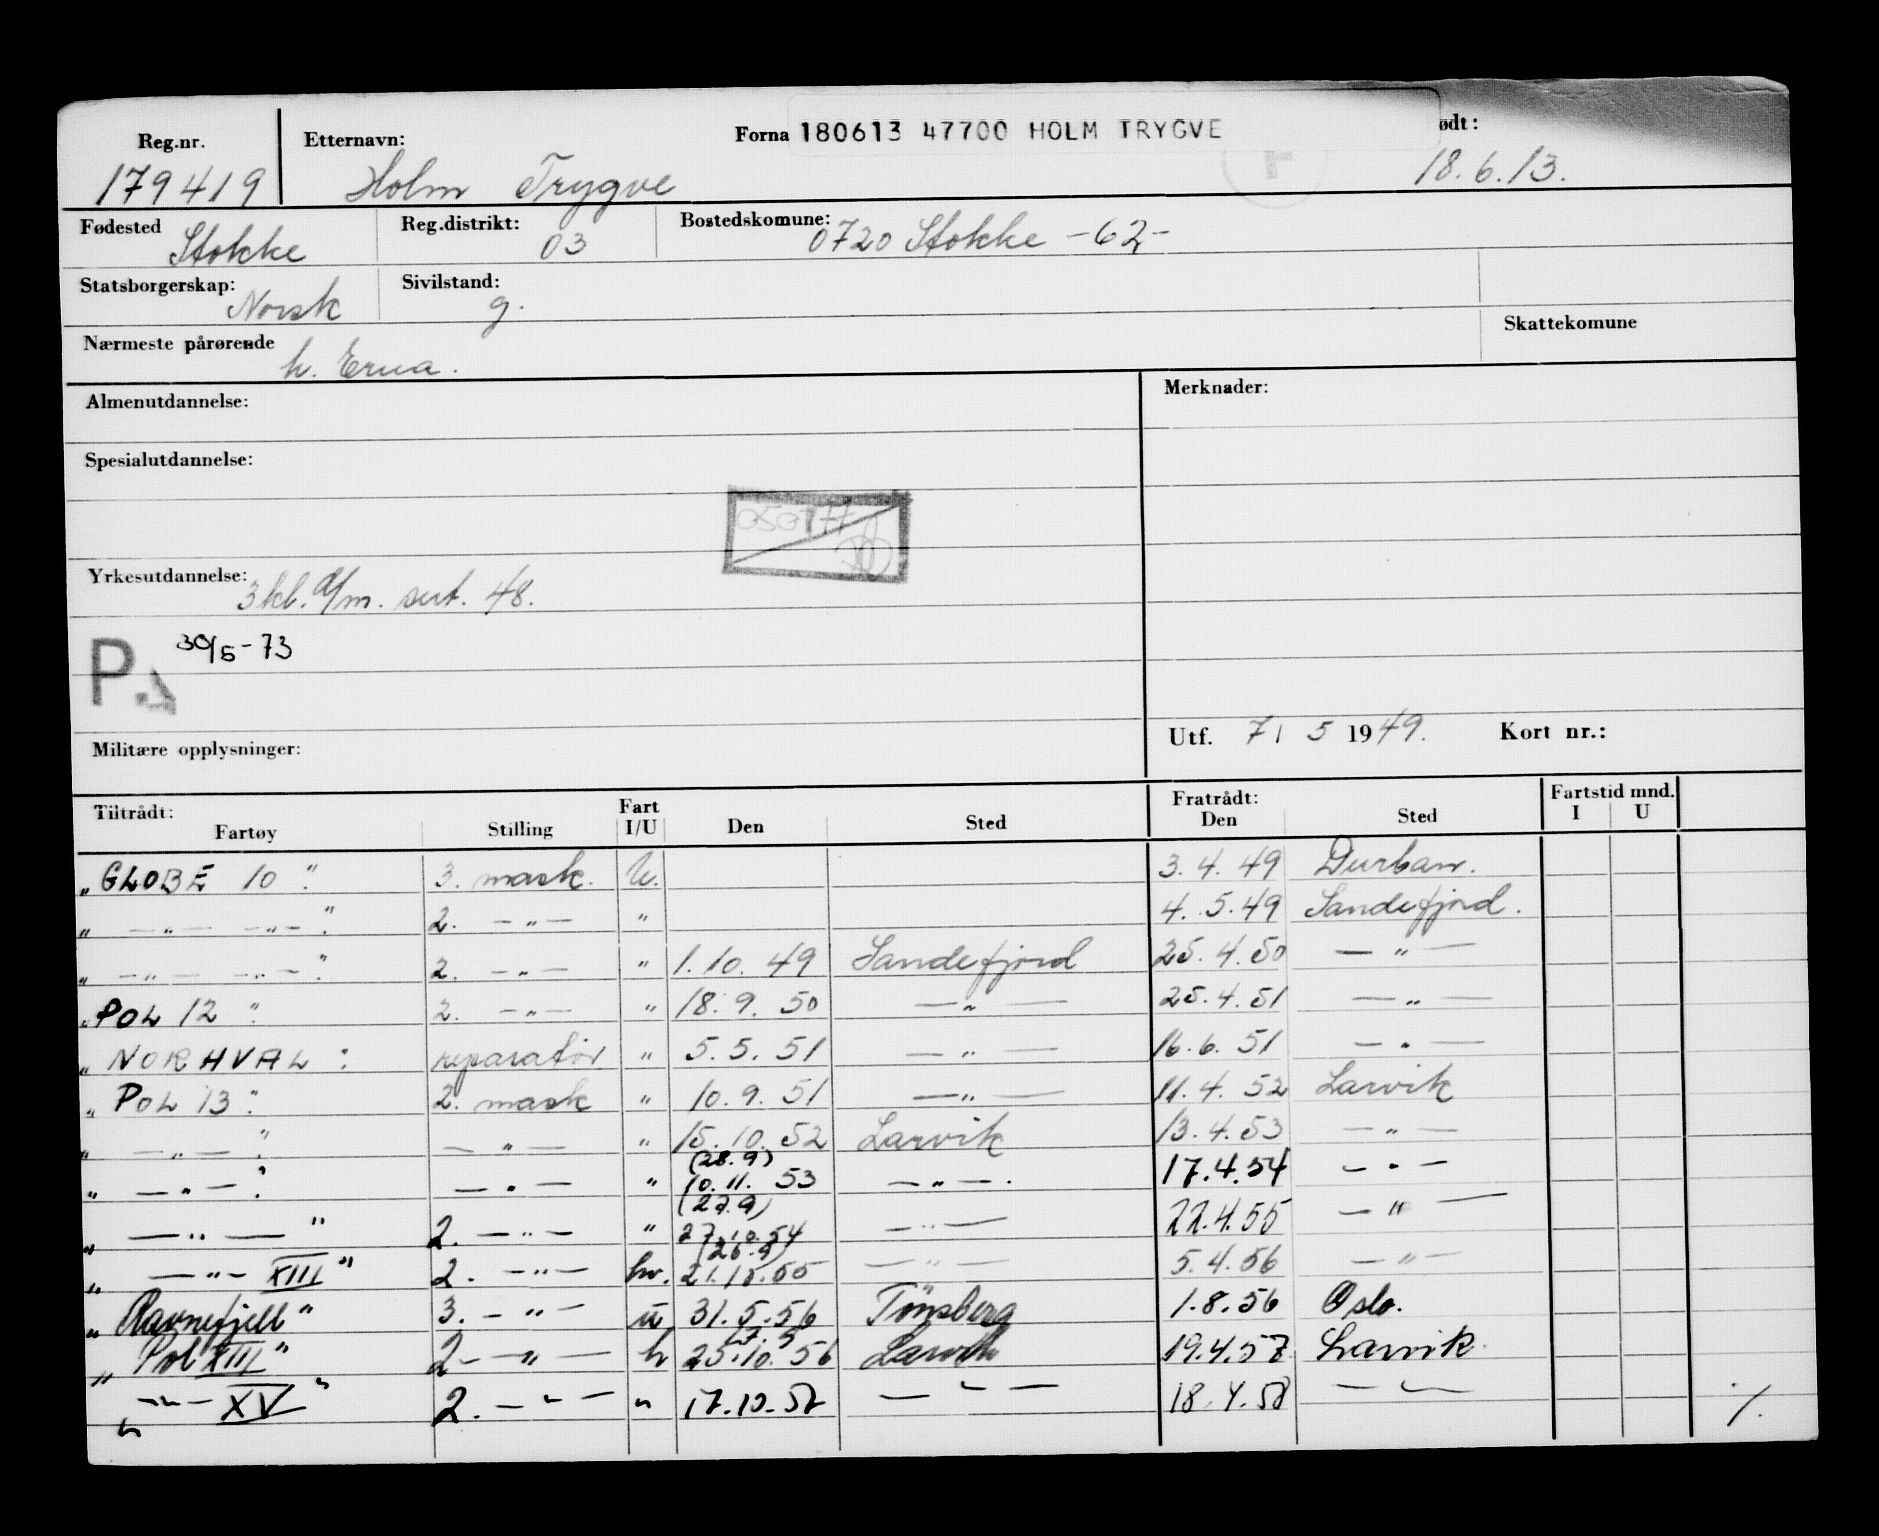 Reg.nr. Etternavn: Forna 180613 47700 HOLM TRYGVE ødt:
179419 Holm Trygve 18.6.13.
Fødested Stokke Reg.distrikt: 03 Bostedskomune: 0720 Stokke -62-
Statsborgerskap: Norsk Sivilstand: g.
Nærmeste pårørende h. Erna. Skattekomune
Almenutdannelse: Merknader:
Spesialutdannelse:
Yrkesutdannelse: 3 kl. d/m. sert. 48.
P. 30/5-73
Militære opplysninger: Utf. 71 5 1949. Kort nr.:
Tiltrådt: Fart Fratrådt: Fartstid mnd.
Fartøy Stilling I/U Den Sted Den Sted I U
„GLOBE 10" 3. mask. U. 3. 4. 49 Durban.
„ —„— —„—" 2. —„— " 4. 5. 49 Sandefjord.
„ —„— —„—" 2. —„— " 1. 10. 49 Sandefjord 25. 4. 50 —„—
„POL 12" 2. —„— " 18. 9. 50 —„— 25. 4. 51 —„—
„NORHVAL" reparatør " 5. 5. 51 —„— 16. 6. 51 —„—
„POL 13" 2. mask " 10. 9. 51 —„— 11. 4. 52 Larvik
„ —„—" —„— " 15. 10. 52 Larvik 13. 4. 53 —„—
(28.9)
„ —„—" —„— " 10. 11. 53 —„— 17.4.54 —„—
(27.9)
„ —„—" 2. —„— " 27.10.54 —„— 22.4.55 —„—
(26.9)
„ —„— XIII" 2. —„— hv. 21.10.55 —„— 5.4.56 —„—
„Ravnefjell" 3. —„— u 31.5.56 Tönsberg 1.8.56 Oslo.
„Pol XIII" 2 —„— h 25.10.56 Larvik 19.4.57 Larvik
„ —„— XV" 2. —„— " 17.10.57 —„— 18.4.58 —„— /.